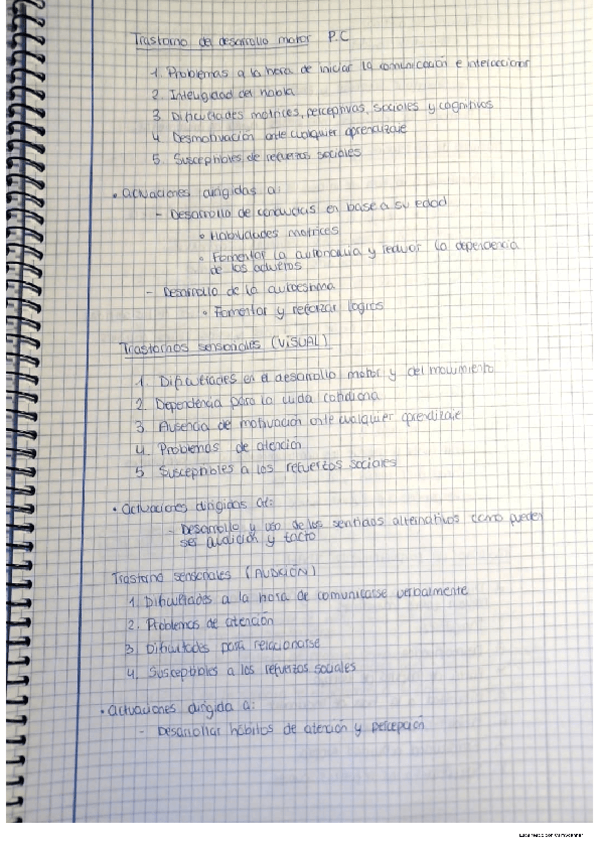 Trastorno del desarrollo motor P.C
1. Problemas a la hora de iniciar la comunicación e interacciones
2. Inteligidad del habla
3. Dificultades motrices, perceptivas, sociales y cognitivas
4. Desmotivación ante cualquier aprendizaje
5. Susceptibles de refuerzos sociales
• Actuaciones dirigidas a:
- Desarrollo de conductas en base a su edad
• Habilidades motrices
• Fomentar la autonomía y reducir la dependencia
de los adultos
- Desarrollo de la autoestima
• Fomentar y reforzar logros
Trastornos sensoriales (VISUAL)
1. Dificultades en el desarrollo motor y del movimiento
2. Dependencia para la vida cotidiana
3. Ausencia de motivación ante cualquier aprendizaje
4. Problemas de atención
5. Susceptibles a los refuerzos sociales
• Actuaciones dirigidas a:
- Desarrollo y uso de los sentidos alternativos como pueden
ser audición y tacto
Trastorno sensoriales (AUDICIÓN)
1. Dificultades a la hora de comunicarse verbalmente
2. Problemas de atención
3. Dificultades para relacionarse
4. Susceptibles a los refuerzos sociales
• Actuaciones dirigida a:
- Desarrollar hábitos de atención y percepción